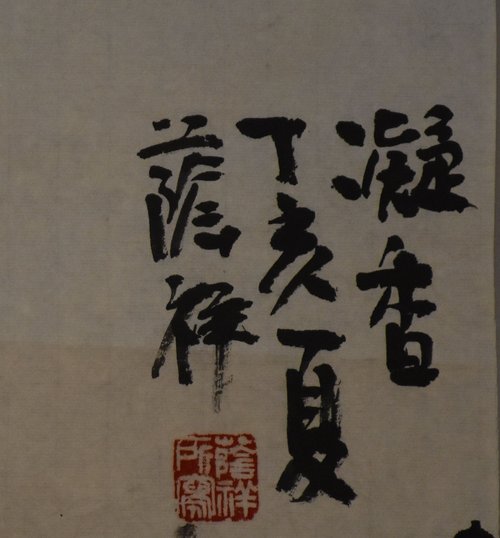 凝香
丁亥夏
蔭祥
蔭祥
所寫